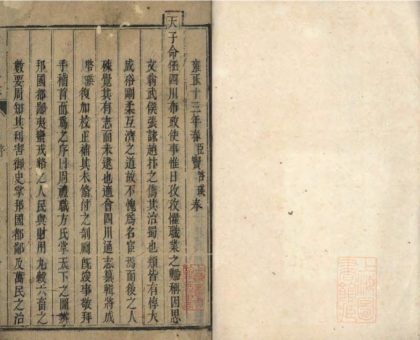 雍正十三年春臣竇啓瑛奉
天子命任四川布政使事惟日孜孜懼職業之曠稱因思
文翁武侯張詠趙抃之儔其治蜀也類皆有偉大
咸俗剛柔互濟之道故不愧為名宦焉而後之人
殊覺其有志而未逮也適會四川通志裒輯將成
幣奉復加校正補其未備付之剞劂旣竣事敬拜
手稽首而為之序曰周禮職方氏掌天下之圖與
邦國都鄙夷蠻戎貉之人民與財用九穀六畜之
數要周知其利害御史掌邦國都鄙及萬民之治